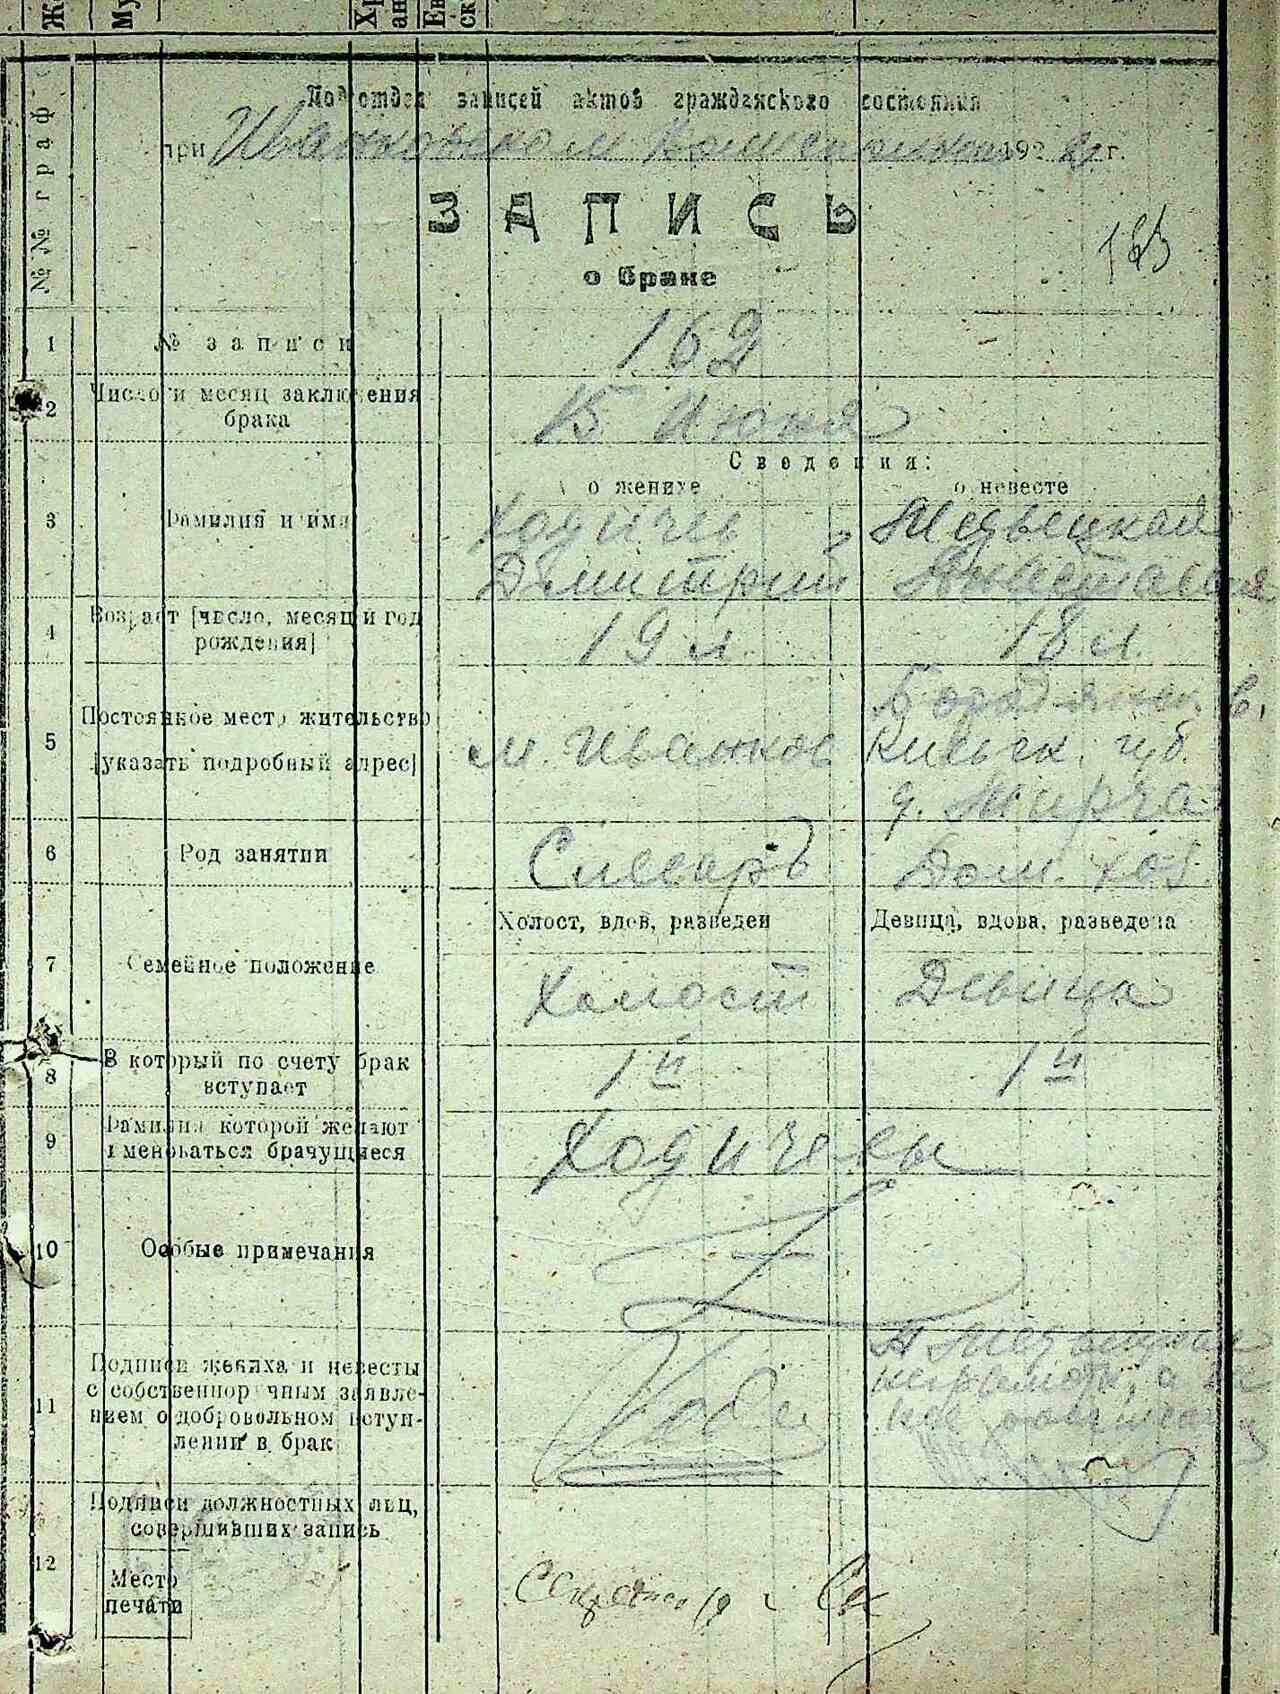 Подотдел записей актов гражданского состояния
при Иванковском Волисполкоме 192 г.
ЗАПИСЬ
о браке
№№ граф
1 № записи 162
2 Число и месяц заключения брака 15 Июня
Сведения:
о женихе о невесте
3 Фамилия и имя Ходичев
Дмитрий Анастасия
4 Возраст [число, месяц и год рождения] 19 л. 18 л.
5 Постоянное место жительство [указать подробный адрес] м. Иванков Бородянск. в.
Киевск. губ.
д. Мирча
6 Род занятий Слесарь Дом. хоз.
Холост, вдов, разведен Девица, вдова, разведена
7 Семейное положение Холост Девица
8 В который по счету брак вступает 1й 1й
9 Фамилия которой желают именоваться брачущиеся Ходичевы
10 Особые примечания
11 Подписи жениха и невесты с собственноручным заявлением о добровольном вступлении в брак
неграмотн, а за
нее
12 Подписи должностных лиц, совершивших запись
Место печати